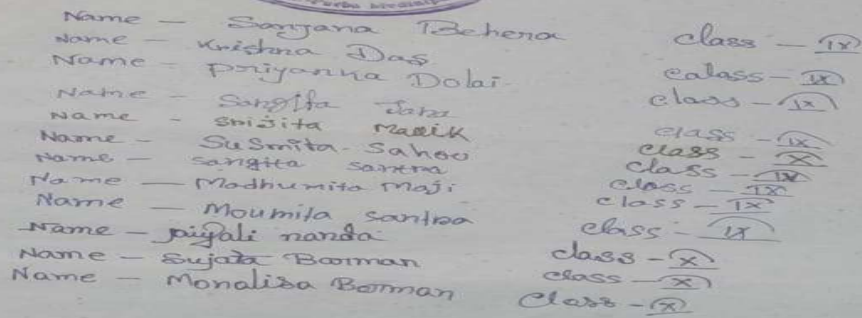 Name - Sanjana Behera class - IX
Name - Krishna Das calass - IX
Name - Priyanna Dolai class - IX
Name - Sangita Jana class - IX
Name - Srijita Manik class - X
Name - Susmita Sahoo class - IX
Name - sangita santra class - IX
Name - Madhumita Maji class - IX
Name - Moumita santra class - IX
Name - paiyali nanda class - X
Name - Sujata Barman class - X
Name - Monalisa Barman class - X